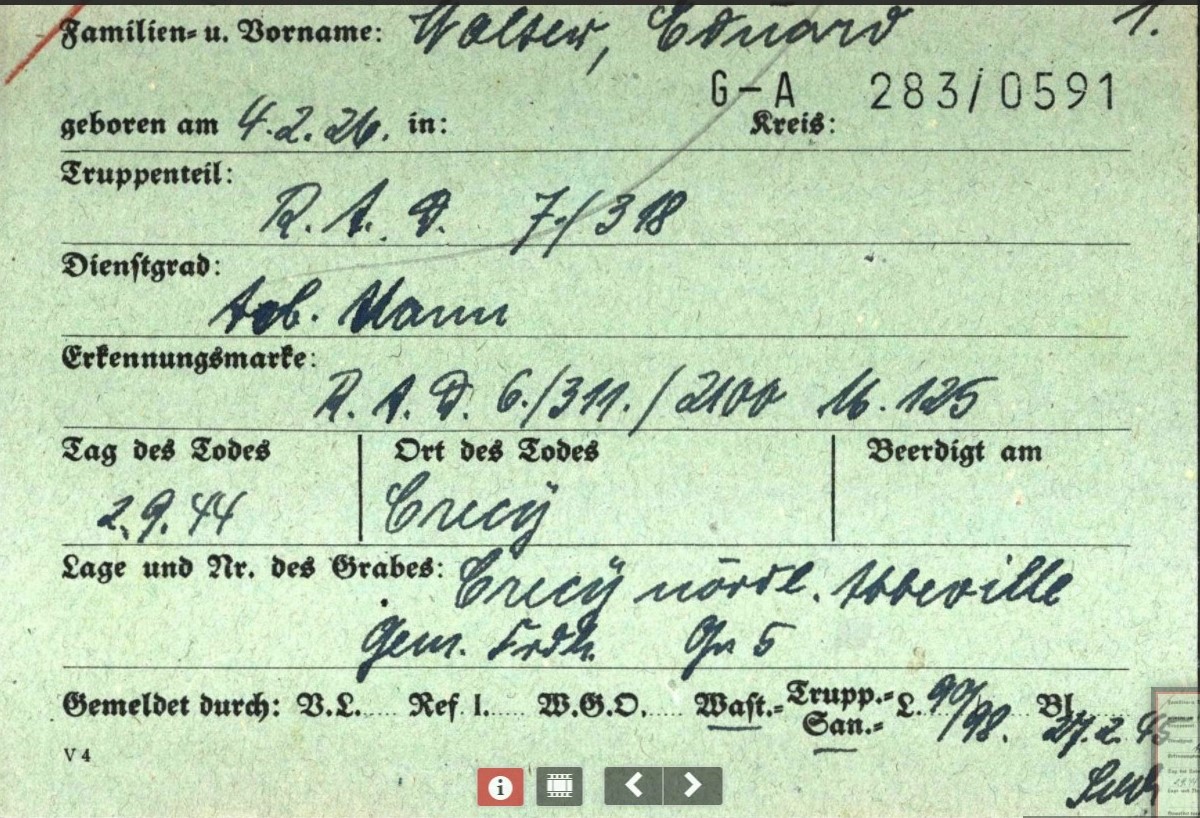 Familien- u. Vorname: Walter, Eduard 1.
G-A 283/0591
geboren am 4.2.26. in: Kreis:
Truppenteil:
R. A. D. 7./318
Dienstgrad:
Arb. Mann
Erkennungsmarke:
R. A. D. 6./311. / 2100 16. 125
Tag des Todes Ort des Todes Beerdigt am
2.9.44 Crecÿ
Lage und Nr. des Grabes: Crecÿ nördl. Abbeville
Gem. Frdh. Gr 5
Gemeldet durch: V.L. Ref. I. W.G.O. Wast.- Trupp.- San.- L. 90/98. Bl.
27.2.45
V 4